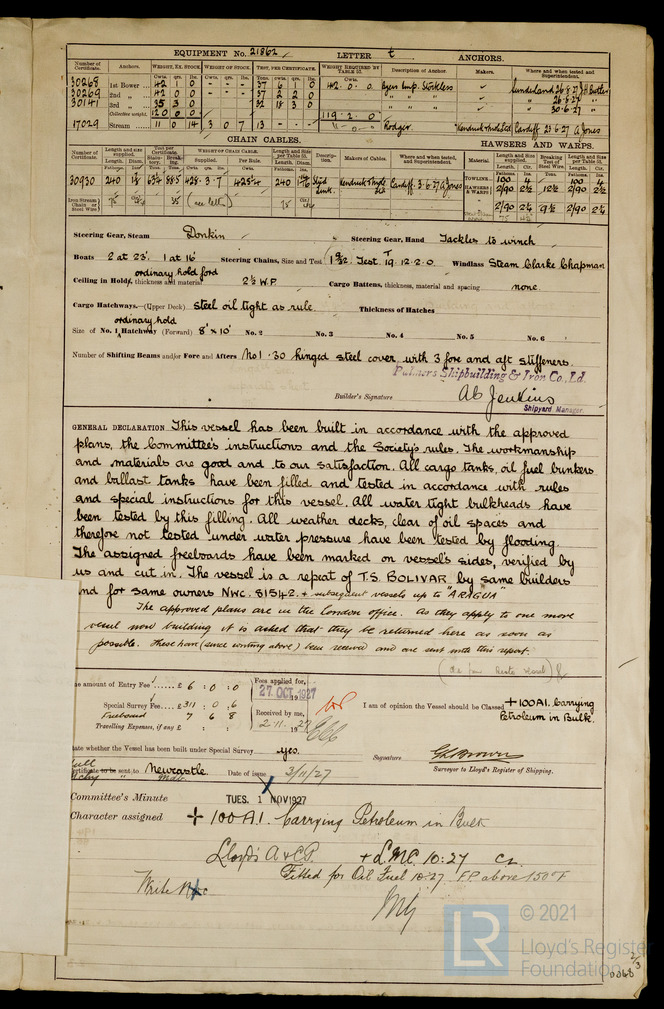 EQUIPMENT No. 21862 LETTER t ANCHORS.
Number of Certificate. Anchors. WEIGHT, EX. STOCK. WEIGHT OF STOCK. TEST, PER CERTIFICATE. WEIGHT REQUIRED BY TABLE 31. Description of Anchor. Makers. Where and when tested and Superintendent.
30268 1st Bower 42 1 0 - - - 37 6 1 0 42.0.0 Byers Imp. Stockless Sunderland
30269 2nd " 42 1 0 - - - 37 2 0 " " 26.8.27 "
30141 3rd " 35 3 0 - - - 32 18 3 0 " " 30.6.27 "
Collective weight 120 0 0 119.2.0
17029 Stream 11 0 14 3 0 7 13 - - - Rodger. Cardiff 23.6.27 A Jones
CHAIN CABLES. HAWSERS AND WARPS.
Number of Certificate. Length and size supplied. Test per Certificate. WEIGHT OF CHAIN CABLE. Length and size per Table 31. Description. Makers of Cables. Where and when tested, and Superintendent. Material Length and Size supplied. Breaking Test of Steel Wire. Length and Size per Table 31.
Fathoms. Diam. Statutory. Breaking. Supplied. Per Rule. Length. Diam.
30930 240 88.5 428.3.7 240 Stud Link. Cardiff. 3.6.27 A Jones
TOWLINE 100 4 100 4
HAWSERS & WARPS 2/90 2½ 12½ 2/90 2½
2/90 2¼ 2/90 2¼
Iron Stream Chain or Steel Wire 75 (see letter) 75
Steering Gear, Steam Donkin Steering Gear, Hand Tackles to winch
Boats 2 at 23' 1 at 16' Steering Chains, Size and Test 1 9/32 Test 19.12.2.0 Windlass Steam Clarke Chapman
ordinary hold ford
Ceiling in Hold, thickness and material 2½ W.P. Cargo Battens, thickness, material and spacing none.
Cargo Hatchways.—(Upper Deck) Steel oil tight as rule. Thickness of Hatches
ordinary hold
Size of No. 1 Hatchway (Forward) 8' x 10' No. 2 No. 3 No. 4 No. 5 No. 6
Number of Shifting Beams and/or Fore and Afters No 1 .30 hinged steel cover, with 3 fore and aft stiffeners.
Palmers Shipbuilding & Iron Co., Ld.
Builder's Signature Jenkins
Shipyard Manager.
GENERAL DECLARATION This vessel has been built in accordance with the approved
plans, the Committee's instructions and the Society's rules. The workmanship
and materials are good and to our satisfaction. All cargo tanks, oil fuel bunkers
and ballast tanks have been filled and tested in accordance with rules
and special instructions for this vessel. All water tight bulkheads have
been tested by this filling. All weather decks, clear of oil spaces and
therefore not tested under water pressure have been tested by flooding.
The assigned freeboards have been marked on vessel's sides, verified by
us and cut in. The vessel is a repeat of T.S. BOLIVAR by same builders
and for same owners NWC. 81542. + subsequent vessels up to "ARAGUA"
The approved plans are in the London office. As they apply to one more
vessel now building it is asked that they be returned here as soon as
possible. These have (since writing above) been received and are sent with this report.
amount of Entry Fee £6 : 0 : 0 Fees applied for,
27 OCT 1927
Special Survey Fee £311 : 0 : 6 I am of opinion the Vessel should be Classed +100A1. Carrying
Freeboard 7 6 8 Received by me, Petroleum in Bulk.
Travelling Expenses, if any £ : : 2.11.1927
State whether the Vessel has been built under Special Survey yes. Signature
Certificate to be sent to Newcastle Date of issue 3/11/27 Surveyor to Lloyd's Register of Shipping.
Committee's Minute TUES. 1 NOV 1927
Character assigned +100A1. Carrying Petroleum in Bulk
Lloyd's A & CP. +LMC 10:27 CL
Fitted for Oil Fuel 10.27 F.P. above 150°F
Write
© 2021
LR Lloyd's Register
Foundation